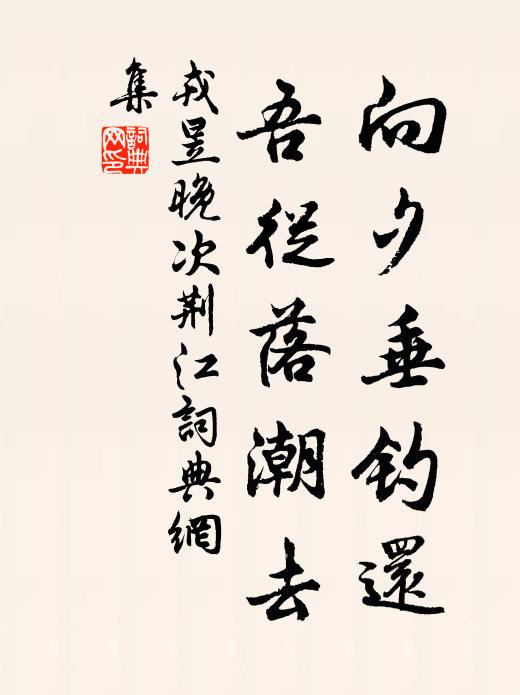 向夕垂钓還
吾從落潮去
戎昱晚次荆江詞典網
集
詞典
网印